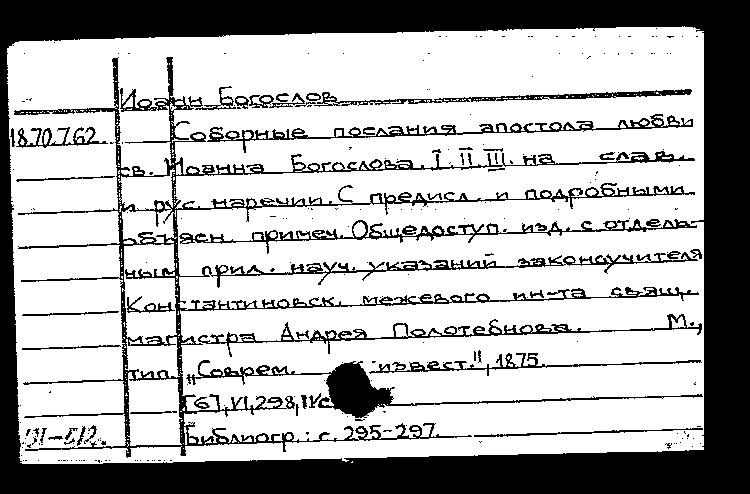 Иоанн Богослов
18.70.7.62. Соборные послания апостола любви
св. Иоанна Богослова. I. II. III. на слав.
и рус. наречии. С предисл. и подробными
объясн. примеч. Общедоступ. изд. с отдель-
ным прил. науч. указаний законоучителя
Константиновск. межевого ин-та свящ.
магистра Андрея Полотебнова. М.,
тип. „Соврем. извест.", 1875.
[6], VI, 298, IV с.
Библиогр.: с. 295-297.